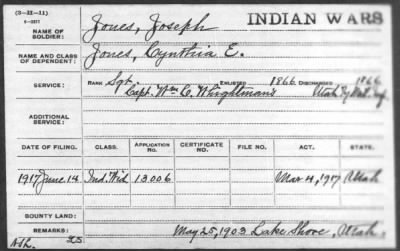 (3-22-11)
6-2277
INDIAN WARS
NAME OF SOLDIER: Jones, Joseph
NAME AND CLASS OF DEPENDENT: Jones, Cynthia E.
SERVICE: RANK Sgt. ENLISTED 1866 DISCHARGED 1866
Capt. Wm. C. Whightman's Utah
ADDITIONAL SERVICE:
DATE OF FILING. CLASS. APPLICATION NO. CERTIFICATE NO. FILE NO. ACT. STATE.
1917 June 14 Ind. Wid 13006 Mar 4, 1917 Utah
BOUNTY LAND:
REMARKS: May 25, 1903 Lake Shore, Utah.